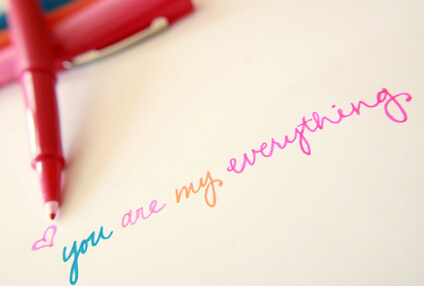 you are my everything